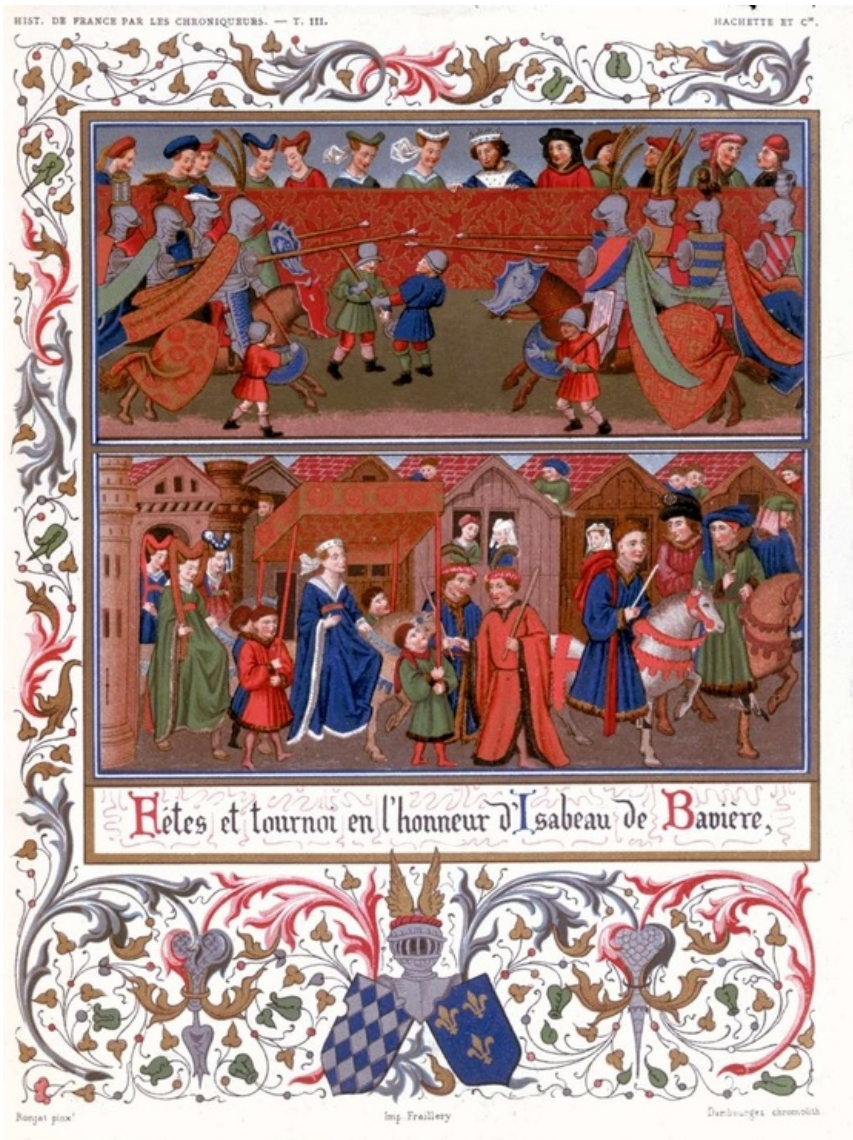 HIST. DE FRANCE PAR LES CHRONIQUEURS. — T. III.
HACHETTE ET Cie.
Fêtes et tournoi en l'honneur d'Isabeau de Bavière,
Ronjat pinxt
Imp. Fraillery
Dambourgez chromolith